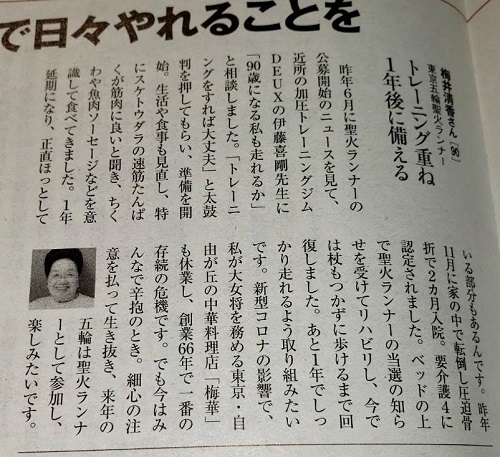 で日々やれることを
梅井清香さん〔90〕
東京五輪聖火ランナー
トレーニング重ね
1年後に備える
昨年6月に聖火ランナーの
公募開始のニュースを見て、
近所の加圧トレーニングジム
DEUXの伊藤喜剛先生に
「90歳になる私も走れるか」
と相談しました。「トレーニ
ングをすれば大丈夫」と太鼓
判を押してもらい、準備を開
始。生活や食事も見直し、特
にスケトウダラの速筋たんぱ
くが筋肉に良いと聞き、ちく
わや魚肉ソーセージなどを意
識して食べてきました。1年
延期になり、正直ほっとして
いる部分もあるんです。昨年
11月に家の中で転倒し圧迫骨
折で2カ月入院。要介護4に
認定されました。ベッドの上
で聖火ランナーの当選の知ら
せを受けてリハビリし、今で
は杖もつかずに歩けるまで回
復しました。あと1年でしっ
かり走れるよう取り組みたい
です。新型コロナの影響で、
私が大女将を務める東京・自
由が丘の中華料理店「梅華」
も休業し、創業66年で一番の
存続の危機です。でも今はみ
んなで辛抱のとき。細心の注
意を払って生き抜き、来年の
五輪は聖火ランナ
ーとして参加し、
楽しみたいです。